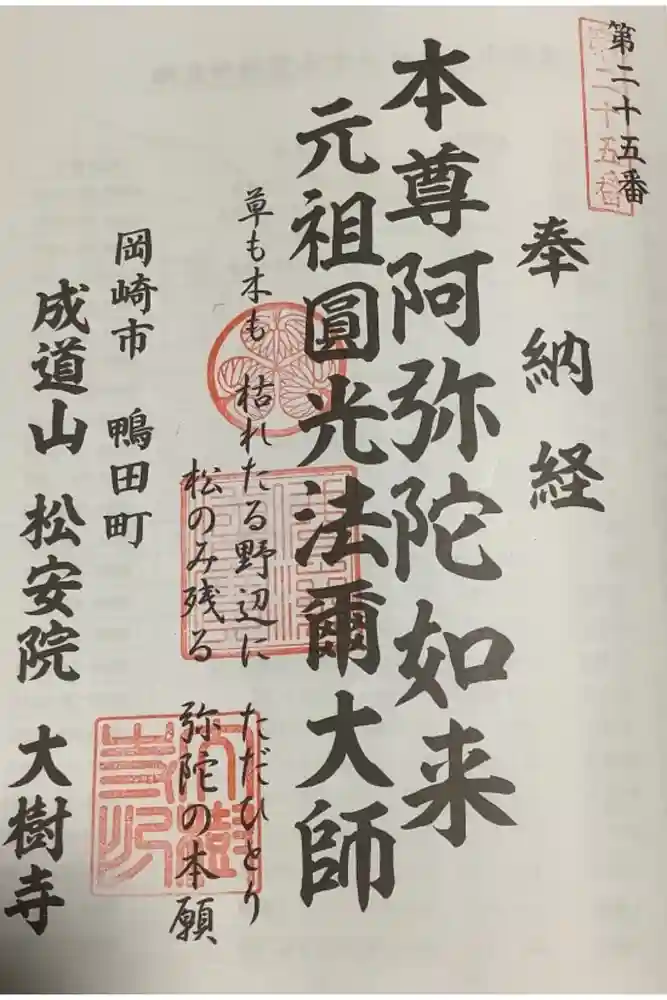 第二十五番
第二十五番
奉納経
本尊阿弥陀如来
元祖圓光法爾大師
草も木も 枯れたる野辺に ただひとり
松のみ残る 弥陀の本願
岡崎市 鴨田町
成道山 松安院 大樹寺